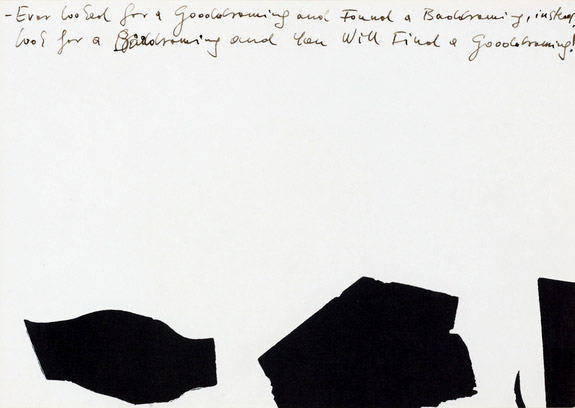 - Ever looked for a Gooddrawing and Found a Baddrawing, instead
look for a Baddrawing and You Will Find a Gooddrawing!